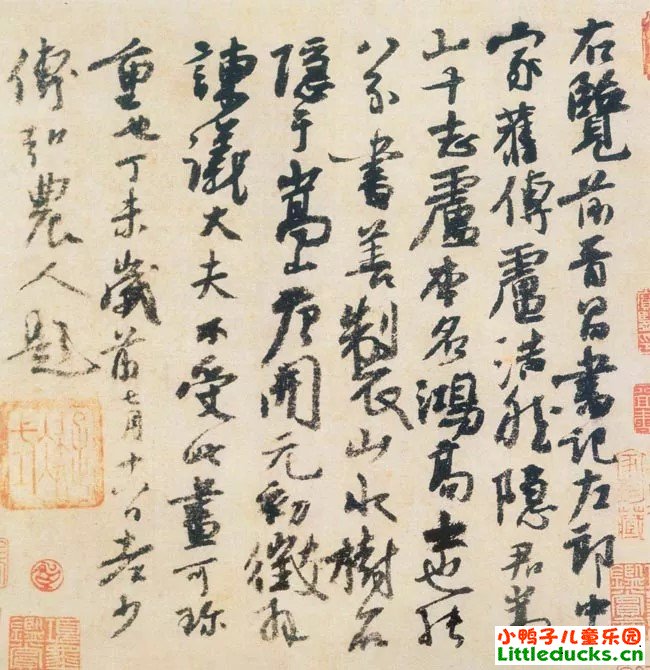 右覽前晉昌書記左郎中
家舊傳盧浩然隱居嵩
山十志盧本名鴻高士也能
八分書善製山水樹石
隱于嵩山唐開元初徵拜
諫議大夫不受此畫可珍
重也丁未歲前七月十八日老少
傅弘農人題
小鸭子儿童乐园
Littleducks.cn